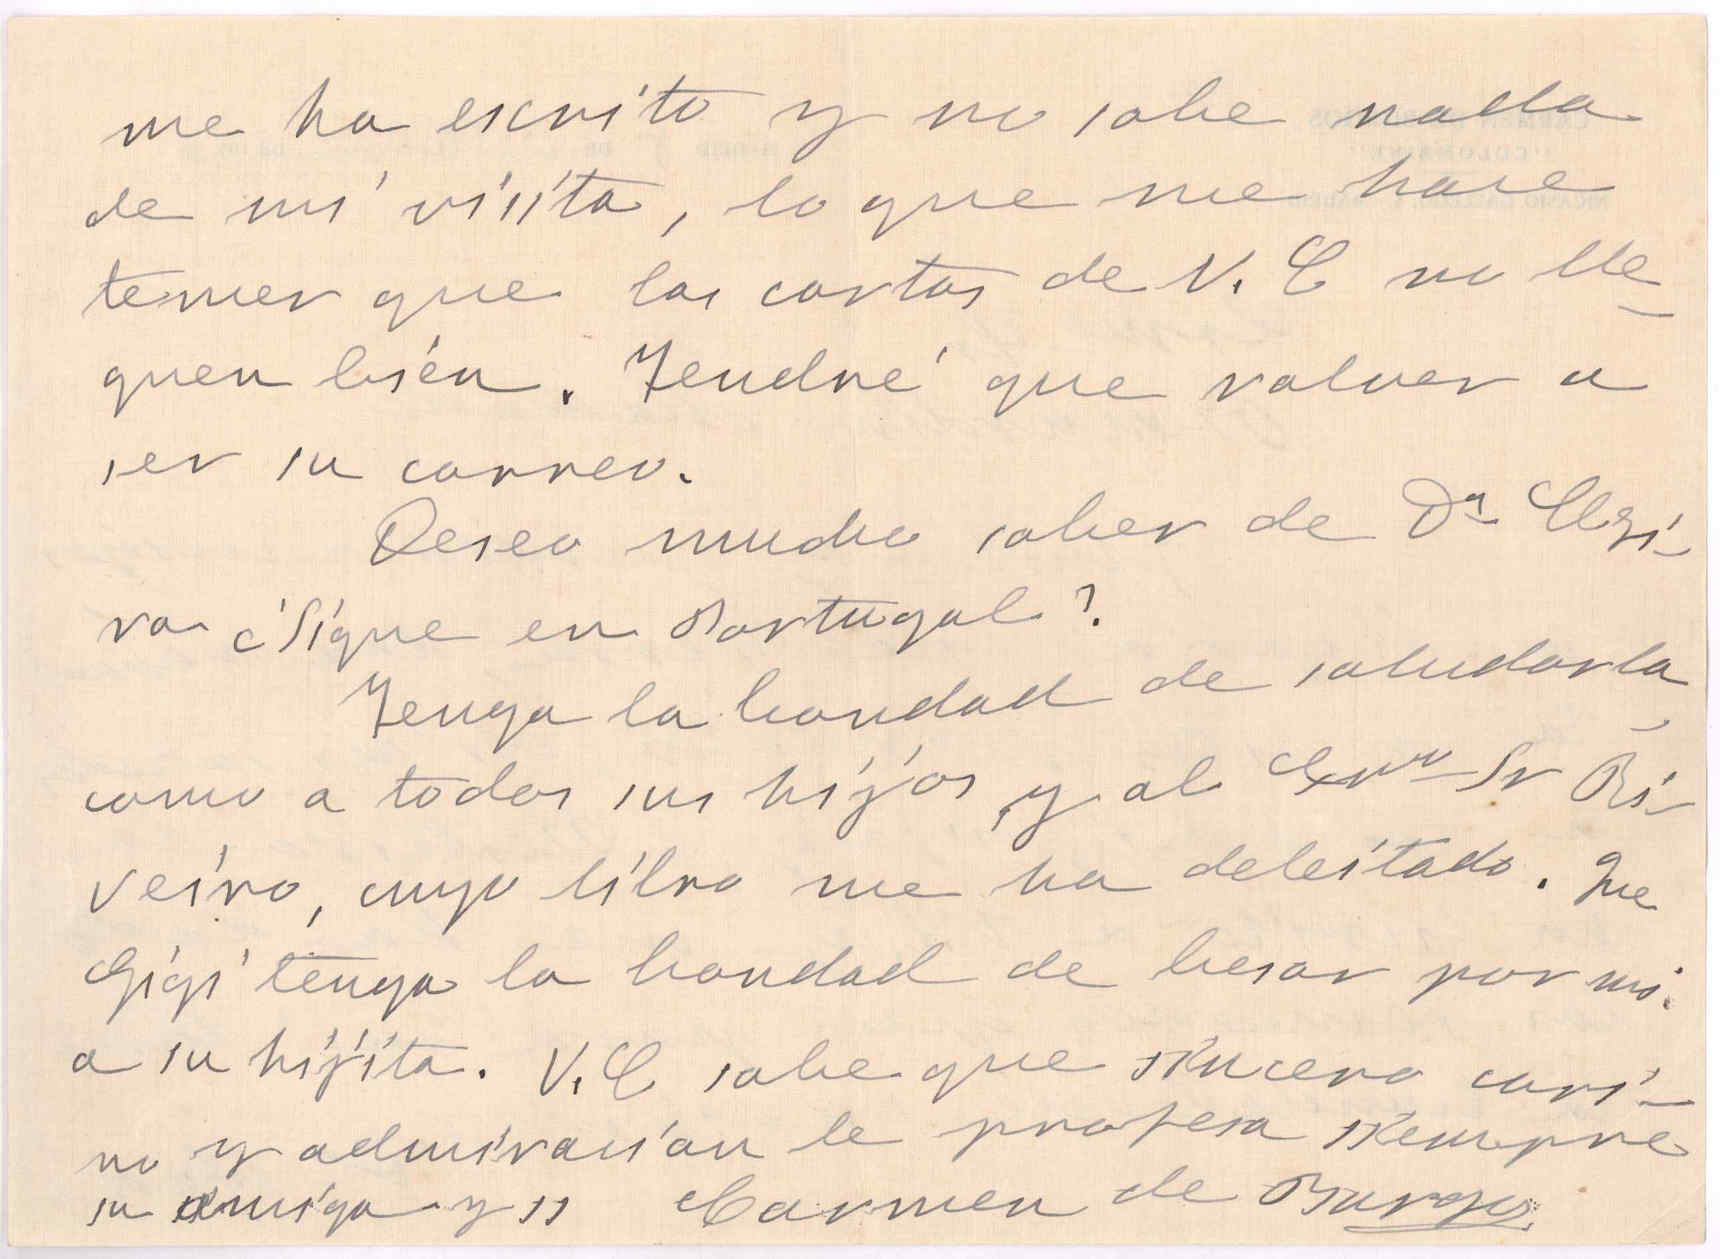 me ha escrito y no sabe nada
de mi visita, lo que me hace
temer que las cartas de V. E no lle-
guen bien. Tendré que volver a
ser su correo.
Deseo mucho saber de Dª Elzi-
ra ¿Sigue en Portugal?
Tenga la bondad de saludarla,
como a todos sus hijos, y al Exmo Sr Ri-
veiro, cuyo libro me ha deleitado. Que
Gigi tenga la bondad de besar por mi
a su hijita. V. E sabe que sincero cari-
no y admiracion le profesa siempre
su amiga y ss Carmen de Burgos